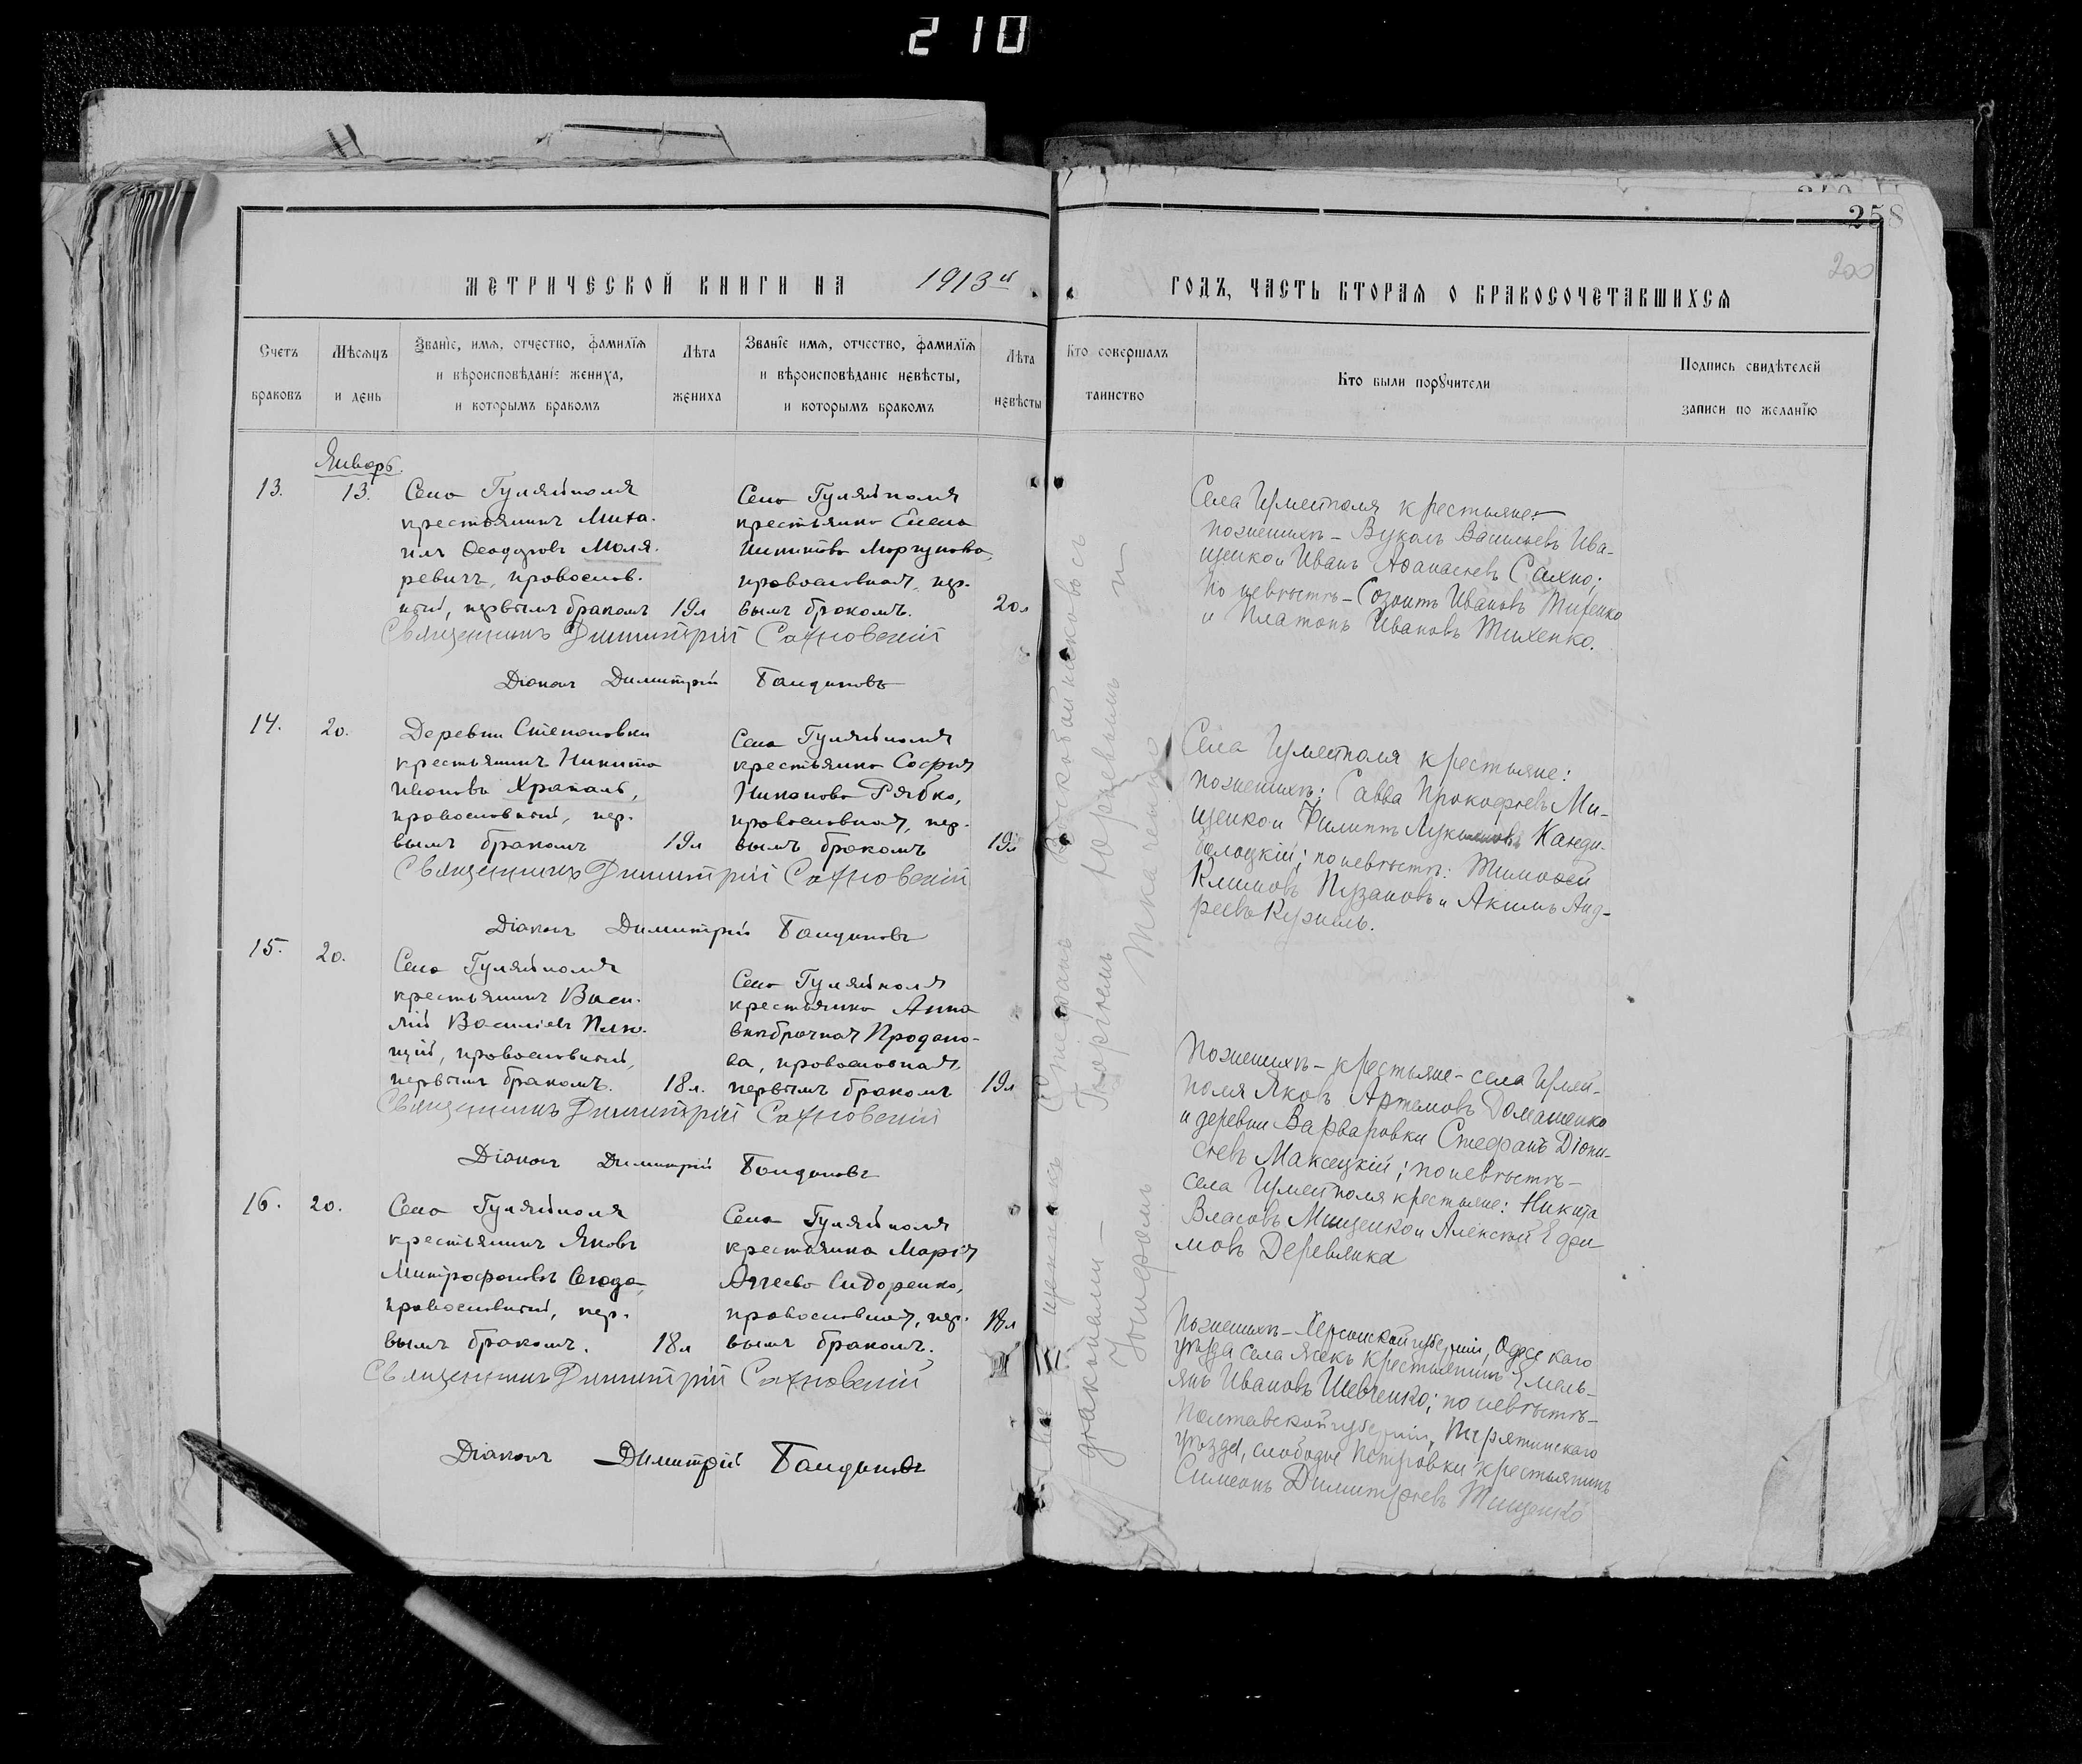 210
258
200
МЕТРИЧЕСКОЙ КНИГИ НА 1913й
ГОДЪ, ЧАСТЬ ВТОРАЯ О БРАКОСОЧЕТАВШИХСЯ
Счетъ браковъ
Мѣсяцъ и день
Званіе, имя, отчество, фамилія
и вѣроисповѣданіе жениха,
и которымъ бракомъ
Лѣта жениха
Званіе имя, отчество, фамилія
и вѣроисповѣданіе невѣсты,
и которымъ бракомъ
Лѣта невѣсты
Кто совершалъ таинство
Кто были поручители
Подпись свидѣтелей
записи по желанію
Январь.
13.
13.
Села Гуляйполя
крестьянинъ Миха-
илъ Ѳеодоровъ Моля-
ревичъ, православ-
ный, первымъ бракомъ
19л
Села Гуляйполя
крестьянка Елена
Никитова Моргунова,
православная, пер-
вымъ бракомъ.
20л
Священникъ Димитрій Сахновскій
Діаконъ Димитрій
Села Гуляйполя крестьяне:
по женихѣ - Вуколъ Васильевъ Ива-
щенко и Иванъ Аѳанасіевъ Сахно;
по невѣстѣ - Созонтъ Ивановъ Тихенко
и Платонъ Ивановъ Тихенко.
14.
20.
Деревни Степановки
крестьянинъ Никита
Ивановъ Храпаль,
православный, пер-
вымъ бракомъ
19л
Села Гуляйполя
крестьянка Софія
Никонова Рябко,
православная, пер-
вымъ бракомъ
19л
Священникъ Димитрій Сахновскій
Діаконъ Димитрій
Села Гуляйполя крестьяне:
по женихѣ: Савва Прокофіевъ Ми-
щенко и Филиппъ Канди-
болоцкій; по невѣстѣ: Тимоѳей
Климовъ Пузановъ и Акимъ Анд-
реевъ Курило.
15.
20.
Села Гуляйполя
крестьянинъ Васи-
лій Василіевъ
православный,
первымъ бракомъ.
18л.
Села Гуляйполя
крестьянка Анна
внѣбрачная Продано-
ва, православная,
первымъ бракомъ
19л
Священникъ Димитрій Сахновскій
Діаконъ Димитрій
По женихѣ - крестьяне - села Гуляй-
поля Яковъ Артемовъ Домашенко
и деревни Варваровки Стефанъ Діони-
сіевъ Максецкій; по невѣстѣ -
села Гуляйполя крестьяне: Никита
Власовъ Мищенко и Алексѣй Ефи-
мовъ Деревянка
16.
20.
Села Гуляйполя
крестьянинъ Яковъ
Митрофановъ
православный, пер-
вымъ бракомъ.
18л
Села Гуляйполя
крестьянка Марія
Аггеева Сидоренко,
православная, пер-
вымъ бракомъ.
18л
Священникъ Димитрій Сахновскій
Діаконъ Димитрій
По женихѣ - Херсонской губерніи, Одесскаго
уѣзда села Яськъ крестьянинъ Емель-
янъ Ивановъ Шевченко; по невѣстѣ -
Полтавской губерніи, Пирятинскаго
уѣзда, слободы Петровки крестьянинъ
Симеонъ Димитріевъ Тищенко
Священникъ Стефанъ
діаконами - Георгіемъ Юрьевымъ и
Ткаченко